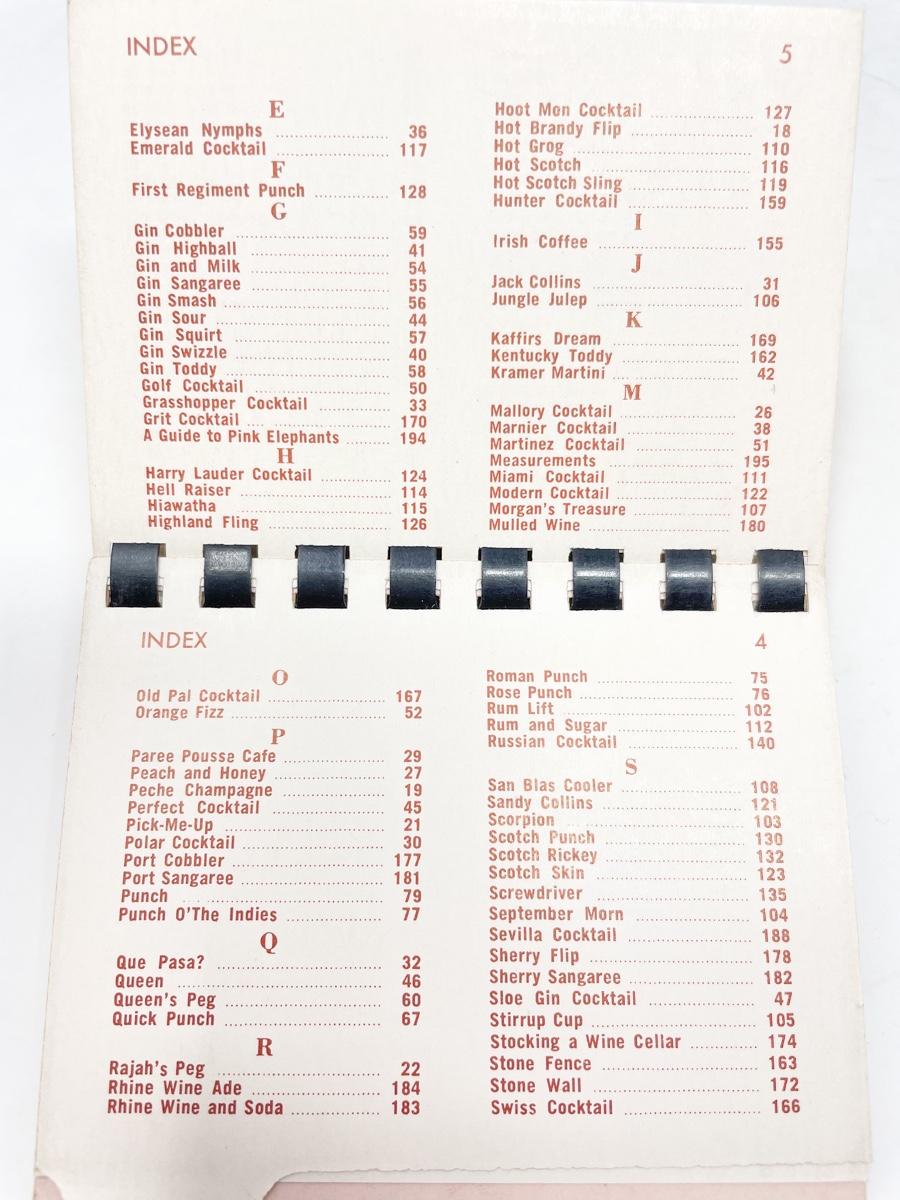 INDEX 5
E
Elysean Nymphs 36
Emerald Cocktail 117
F
First Regiment Punch 128
G
Gin Cobbler 59
Gin Highball 41
Gin and Milk 54
Gin Sangaree 55
Gin Smash 56
Gin Sour 44
Gin Squirt 57
Gin Swizzle 40
Gin Toddy 58
Golf Cocktail 50
Grasshopper Cocktail 33
Grit Cocktail 170
A Guide to Pink Elephants 194
H
Harry Lauder Cocktail 124
Hell Raiser 114
Hiawatha 115
Highland Fling 126
Hoot Mon Cocktail 127
Hot Brandy Flip 18
Hot Grog 110
Hot Scotch 116
Hot Scotch Sling 119
Hunter Cocktail 159
I
Irish Coffee 155
J
Jack Collins 31
Jungle Julep 106
K
Kaffirs Dream 169
Kentucky Toddy 162
Kramer Martini 42
M
Mallory Cocktail 26
Marnier Cocktail 38
Martinez Cocktail 51
Measurements 195
Miami Cocktail 111
Modern Cocktail 122
Morgan's Treasure 107
Mulled Wine 180
INDEX 4
O
Old Pal Cocktail 167
Orange Fizz 52
P
Paree Pousse Cafe 29
Peach and Honey 27
Peche Champagne 19
Perfect Cocktail 45
Pick-Me-Up 21
Polar Cocktail 30
Port Cobbler 177
Port Sangaree 181
Punch 79
Punch O'The Indies 77
Q
Que Pasa? 32
Queen 46
Queen's Peg 60
Quick Punch 67
R
Rajah's Peg 22
Rhine Wine Ade 184
Rhine Wine and Soda 183
Roman Punch 75
Rose Punch 76
Rum Lift 102
Rum and Sugar 112
Russian Cocktail 140
S
San Blas Cooler 108
Sandy Collins 121
Scorpion 103
Scotch Punch 130
Scotch Rickey 132
Scotch Skin 123
Screwdriver 135
September Morn 104
Sevilla Cocktail 188
Sherry Flip 178
Sherry Sangaree 182
Sloe Gin Cocktail 47
Stirrup Cup 105
Stocking a Wine Cellar 174
Stone Fence 163
Stone Wall 172
Swiss Cocktail 166